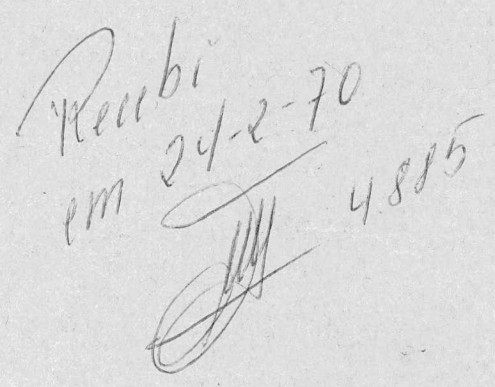 Recebi
em 24-2-70
4885